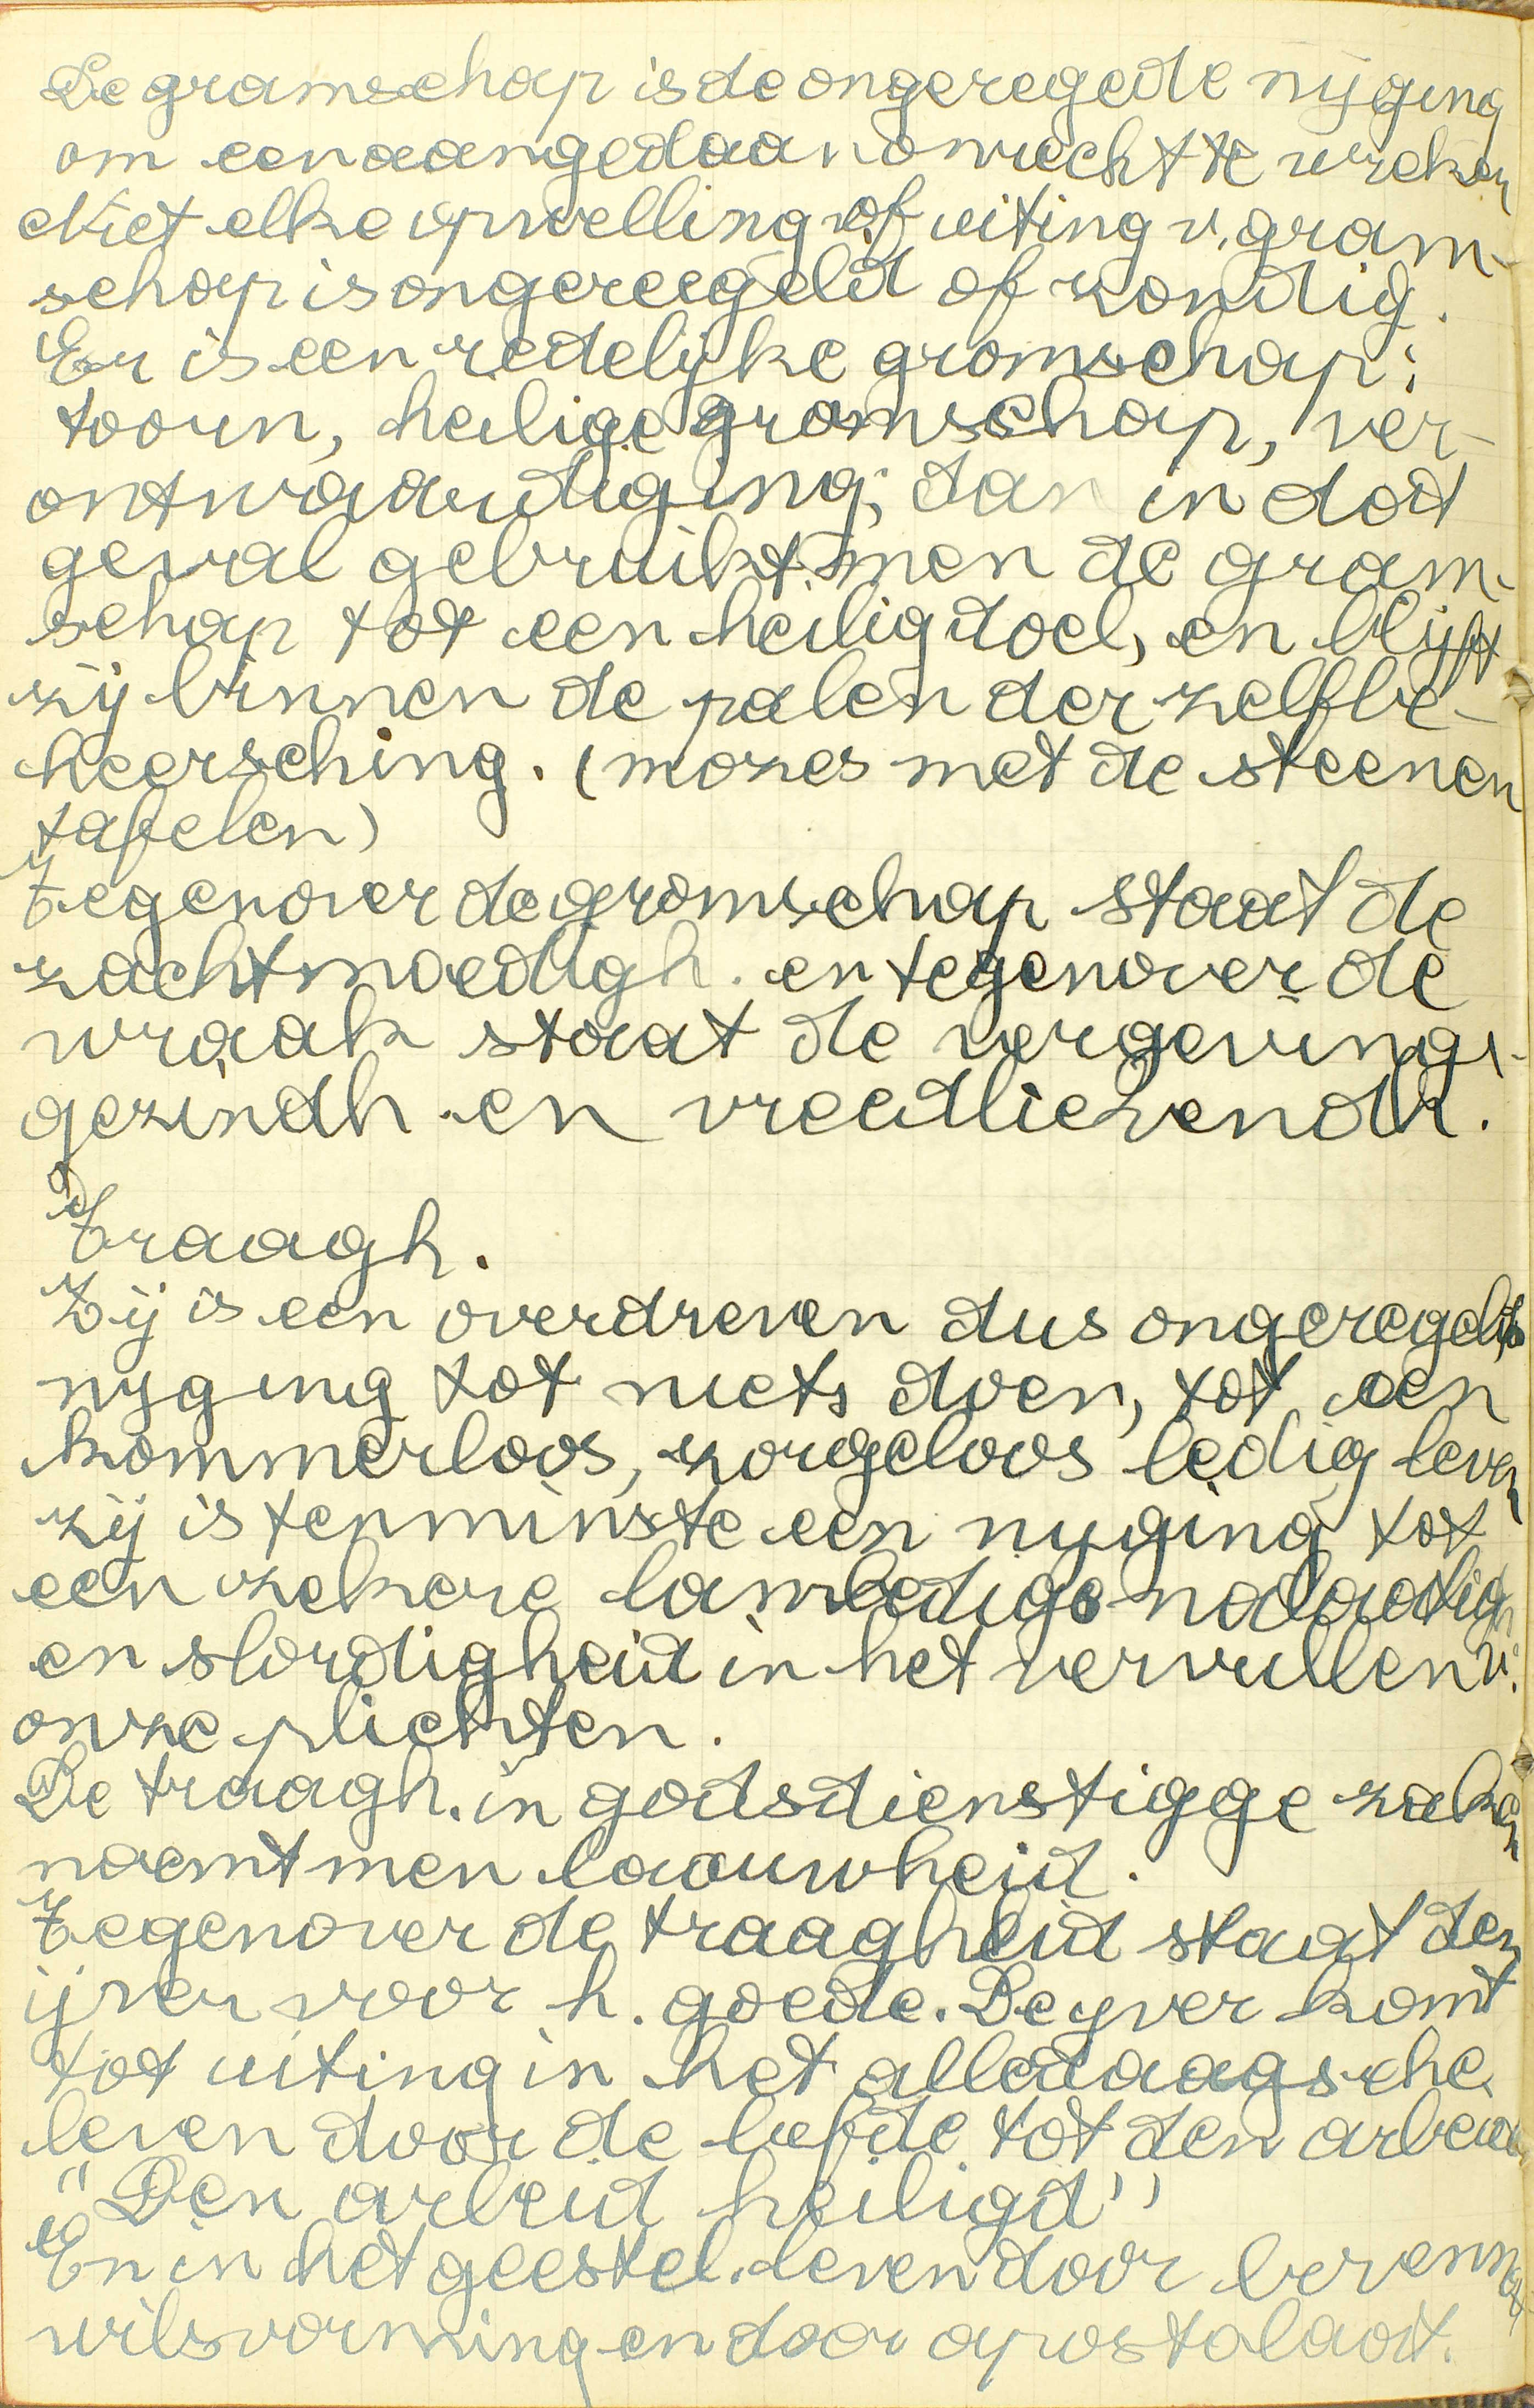 De gramschap is de ongeregelde nijging
om een aangedaan onrecht te wreken
Niet elke opwelling of uiting v. gram-
schap is ongereegeld of zondig.
Er is een redelijke gramschap:
toorn, heilige gramschap, ver-
ontwaardiging; dan in dat
geval gebruikt men de gram-
schap tot een heilig doel, en blijft
zij binnen de palen der zelfbe-
heersching. (mozes met de steenen
tafelen)
Tegenover de gramschap staat de
zachtmoedigh. en tegenover de
wraak staat de vergevings-
gezindh en vreedlievendh.
Traagh.
Zij is een overdreven dus ongeregelde
nijging tot niets doen, tot een
kommerloos, zorgeloos ledig leven
zij is tenminste een nijging tot
een zekere nalaatigh
en slordigheid in het vervullen v.
onze plichten.
De traagh. in godsdienstigge zaken
noemt men laauwheid.
Tegenover de traagheid staat den
ijver voor h. goede. De yver komt
tot uiting in het alledaagsche
leven door de liefde tot den arbeid
"Den arbeid heiligd"
En in het geestel. leven door
wilsvorming en door apostolaat.